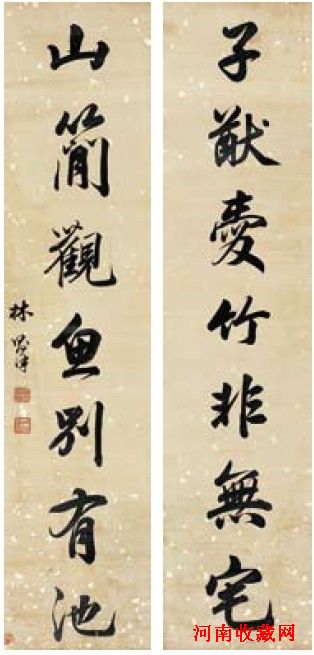 子猷愛竹非無宅
山簡觀魚別有池
林
河南收藏网